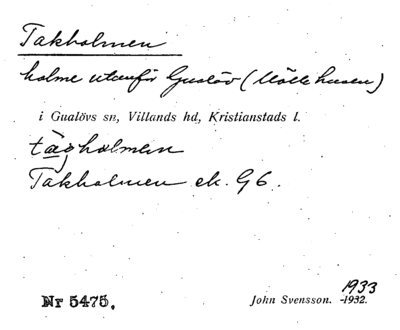 Takholmen
holme utanför Gualöv (Möllehusen)
i Gualövs sn, Villands hd, Kristianstads l.
tàgholmen
Takholmen ek. G6.
1933
Nr 5475. John Svensson. 1932.